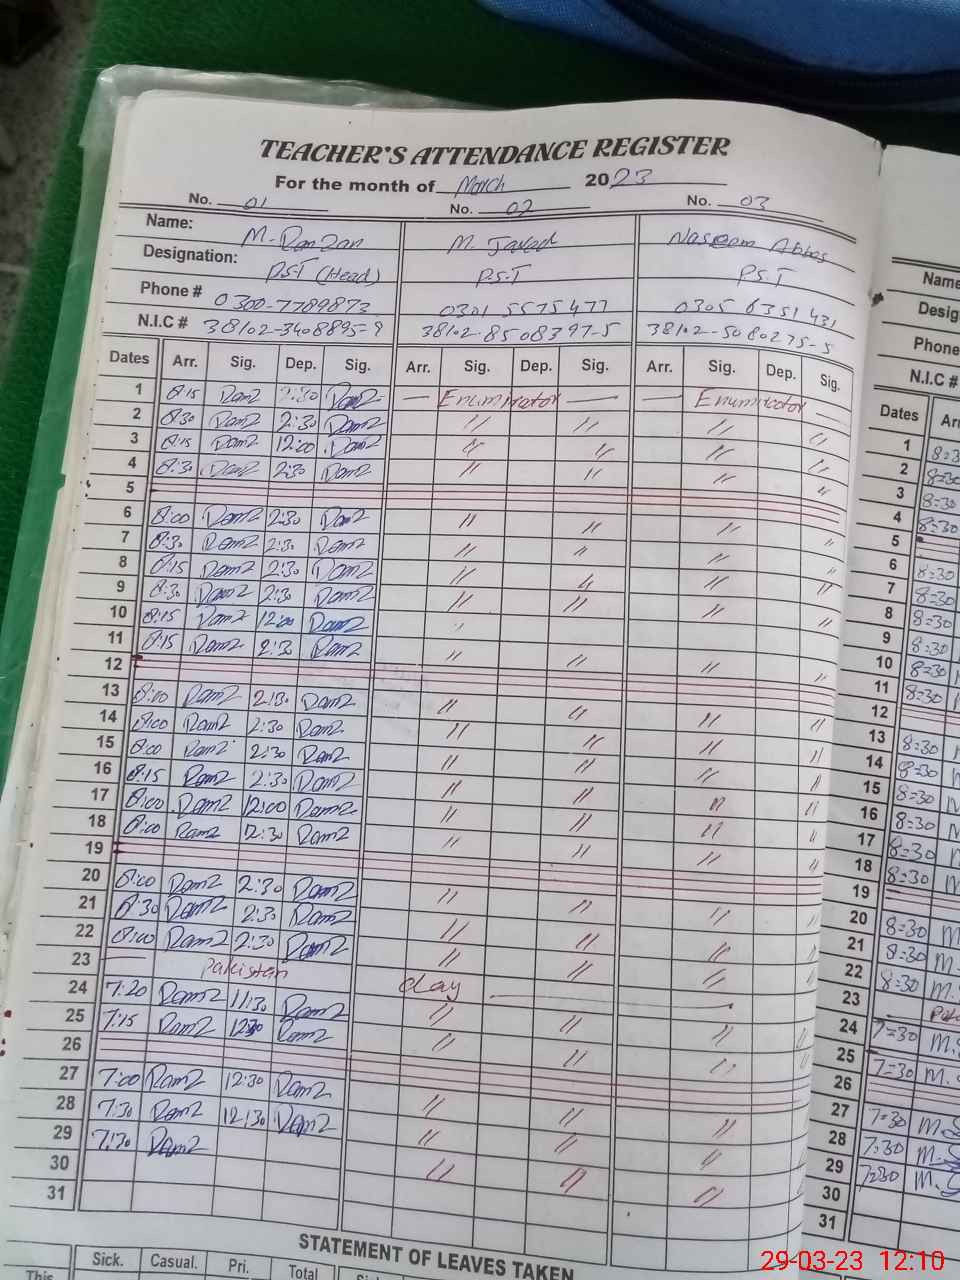 TEACHER'S ATTENDANCE REGISTER
For the month of March 2023
No. 01 No. 02 No. 03
Name: M. Ramzan M. Javed Naseem Abbas
Designation: P.S.T (Head) P.S.T P.S.T
Phone # 0300-7789873 0301 5575477 0305 6351431
N.I.C # 38102-3408895-9 38102-8508397-5 38102-5080275-5
Dates Arr. Sig. Dep. Sig. Arr. Sig. Dep. Sig. Arr. Sig. Dep. Sig.
1 8:15 Ramz 2:30 Ramz — Enumirator — — Enumirator —
2 8:30 Ramz 2:30 Ramz // // // //
3 8:15 Ramz 12:00 Ramz // // // //
4 8:30 Ramz 2:30 Ramz // // // //
5
6 8:00 Ramz 2:30 Ramz // // // //
7 8:30 Ramz 2:30 Ramz // // // //
8 8:15 Ramz 2:30 Ramz // // // //
9 8:30 Ramz 2:30 Ramz // // // //
10 8:15 Ramz 12:00 Ramz
11 8:15 Ramz 2:30 Ramz // // // //
12
13 8:00 Ramz 2:30 Ramz // // // //
14 8:00 Ramz 2:30 Ramz // // // //
15 8:00 Ramz 2:30 Ramz // // // //
16 8:15 Ramz 2:30 Ramz // // // //
17 8:00 Ramz 12:00 Ramz // // // //
18 8:00 Ramz 2:30 Ramz // // // //
19
20 8:00 Ramz 2:30 Ramz // // // //
21 8:30 Ramz 2:30 Ramz // // // //
22 8:00 Ramz 2:30 Ramz // // // //
23 — Pakistan day —
24 7:20 Ramz 11:30 Ramz // // // //
25 7:15 Ramz 12:30 Ramz // // // //
26
27 7:00 Ramz 12:30 Ramz // // // //
28 7:30 Ramz 12:30 Ramz // // // //
29 7:30 Ramz // // // //
30
31
STATEMENT OF LEAVES TAKEN
Sick. Casual. Pri. Total
This
Name
Desig
Phone
N.I.C #
Dates Arr
1 8=30
2 8=30
3 8=30
4 8=30
5
6 8=30
7 8=30
8 8=30
9 8=30
10 8=30
11 8=30
12
13 8=30
14 8=30
15 8=30
16 8=30
17 8=30
18 8=30
19
20 8=30 M.
21 8=30 M.
22 8=30 M.
23
24 7=30 M.
25 7=30 M.
26
27 7=30 M.
28 7:30 M.
29 7=30 M.
30
31
29-03-23 12:10